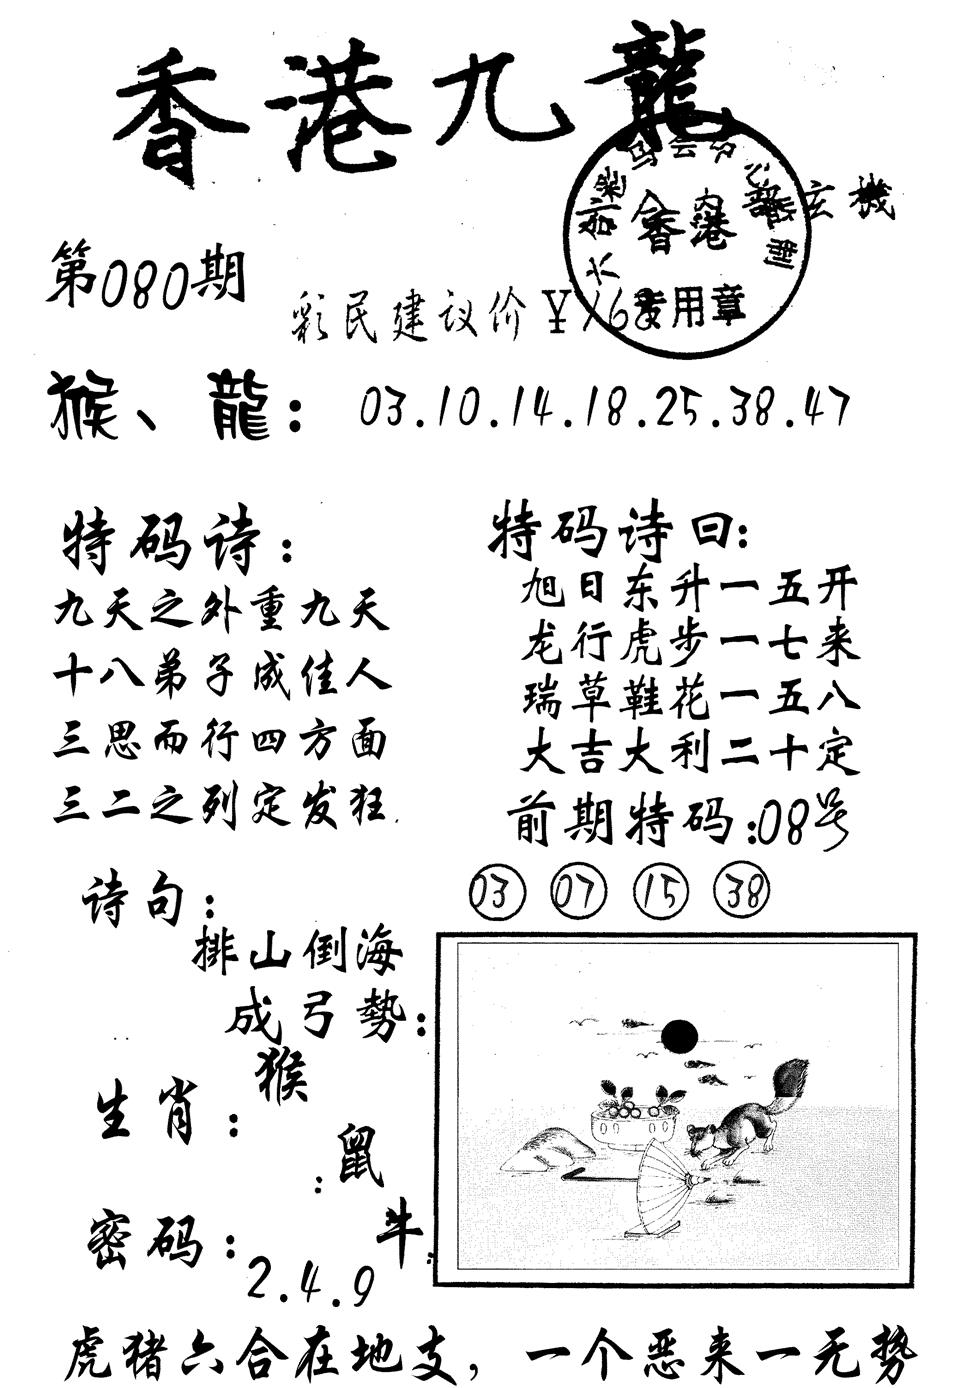 香港九龍
内部玄機
香港
专用章
第080期
彩民建议价¥168
猴、龍：03.10.14.18.25.38.47
特码诗：
九天之外重九天
十八弟子成佳人
三思而行四方面
三二之列定发狂.
特码诗曰：
旭日东升一五开
龙行虎步一七来
瑞草鞋花一五八
大吉大利二十定
前期特码：08号
03 07 15 38
诗句：
排山倒海
成弓勢：
生肖：
猴
鼠
牛
密码：
2.4.9
虎猪六合在地支，一个恶来一无势